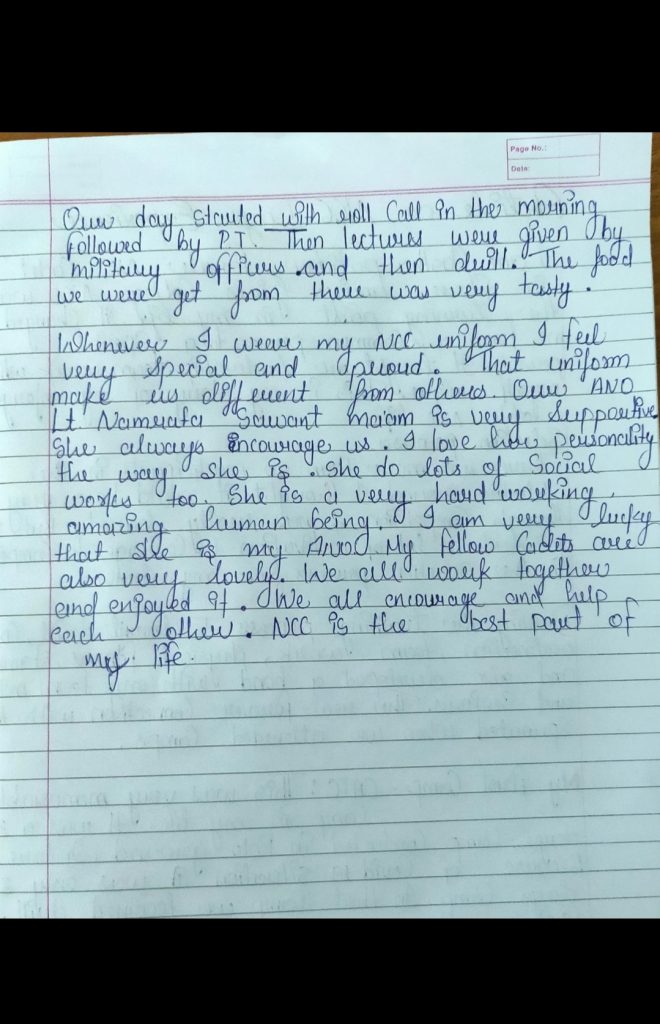 Page No.:
Date:
Our day started with roll Call in the morning
followed by P.T. Then lectures were given by
military officers and then drill. The food
we were get from there was very tasty.
Whenever I wear my NCC uniform I feel
very special and proud. That uniform
make us different from others. Our ANO
Lt. Namrata Sawant ma'am is very Supportive
She always encourage us. I love her personality
the way she is. She do lots of Social
works too. She is a very hard working,
amazing human being. I am very lucky
that she is my ANO. My fellow Cadets are
also very lovely. We all work together
and enjoyed it. We all encourage and help
each other. NCC is the best part of
my life.